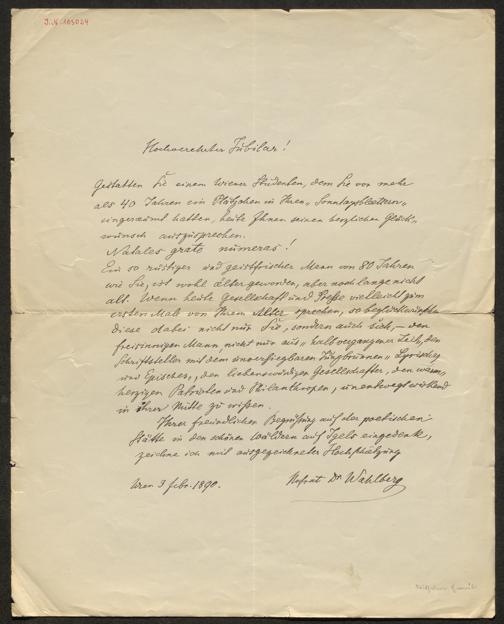 J.N. 105024
Hochverehrter Jubilar!
Gestatten Sie einem Wiener Studenten, dem Sie vor mehr
als 40 Jahren ein Plätzchen in Ihren „Sonntagsblättern„
eingeräumt hatten, heute Ihnen seinen herzlichen Glück„
wunsch auszusprechen.
Natales grate numeras!
Ein so rüstiger und geistfrischer Mann von 80 Jahren
wie Sie, ist wohl älter geworden, aber noch lange nicht
alt. Wenn heute Gesellschaft und Presse vielleicht zum
ersten Mal von Ihrem Alter sprechen, so beglückwünschen
diese dabei nicht nur Sie, sondern auch sich, – den
freisinnigen Mann nicht nur aus „halbvergangener Zeit, den
Schriftsteller mit dem unversiegbaren Jungbrunnen„ Lyrisches
und Episches„, den liebenswürdigen Gesellschafter, den warm„
herzigen Patrioten und Philanthropen, unentwegt wirkend
in Ihrer Mitte zu wissen.
Ihrer freundlichen Begrüßung auf der poetischen
Stätte in den schönen Wäldern auf Igels eingedenk,
zeichne ich mit ausgezeichneter Hochschätzung
Wien 3 Febr. 1890.
Hofrat Dr Wahlberg